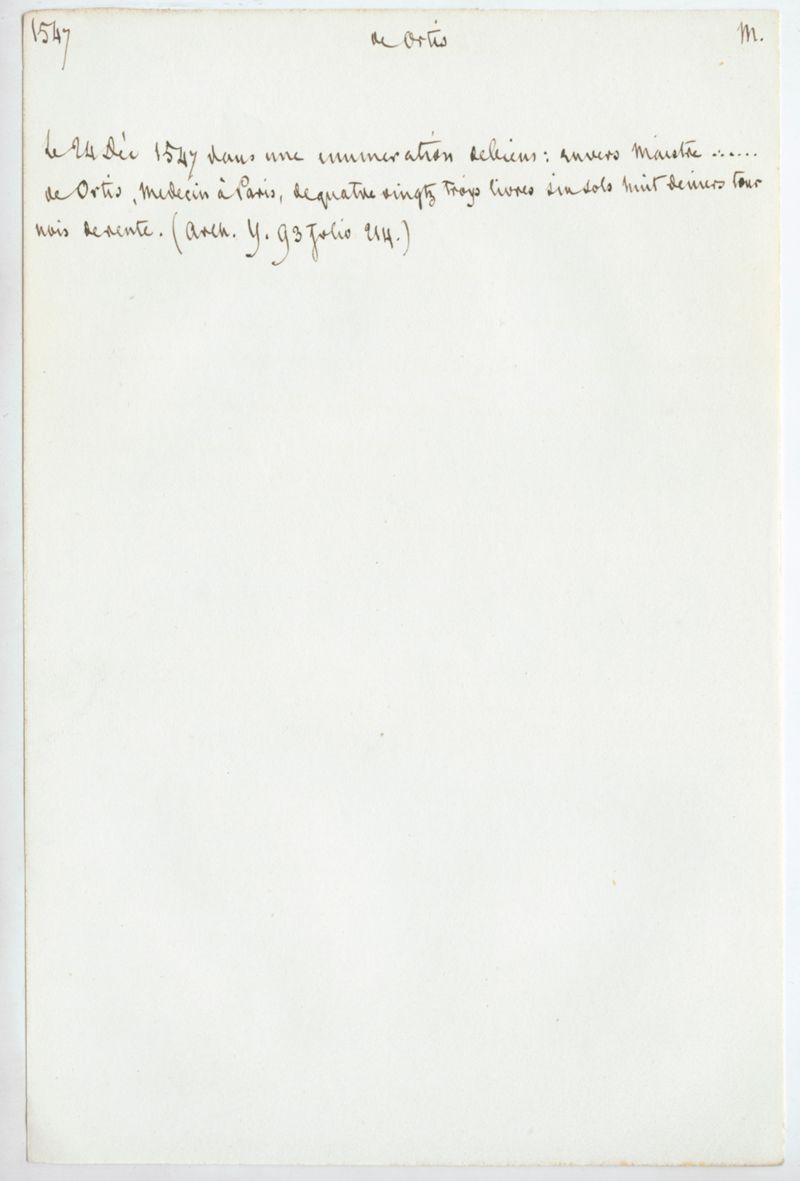 1547 de Ortis M.
Le 24 Déc 1547 dans une enumeration de biens : envers Maistre ......
de Ortis, Medecin à Paris, de quatre vingtz troys livres six sols huit deniers tour
nois de rente. (Arch. Y. 93 folio 214.)